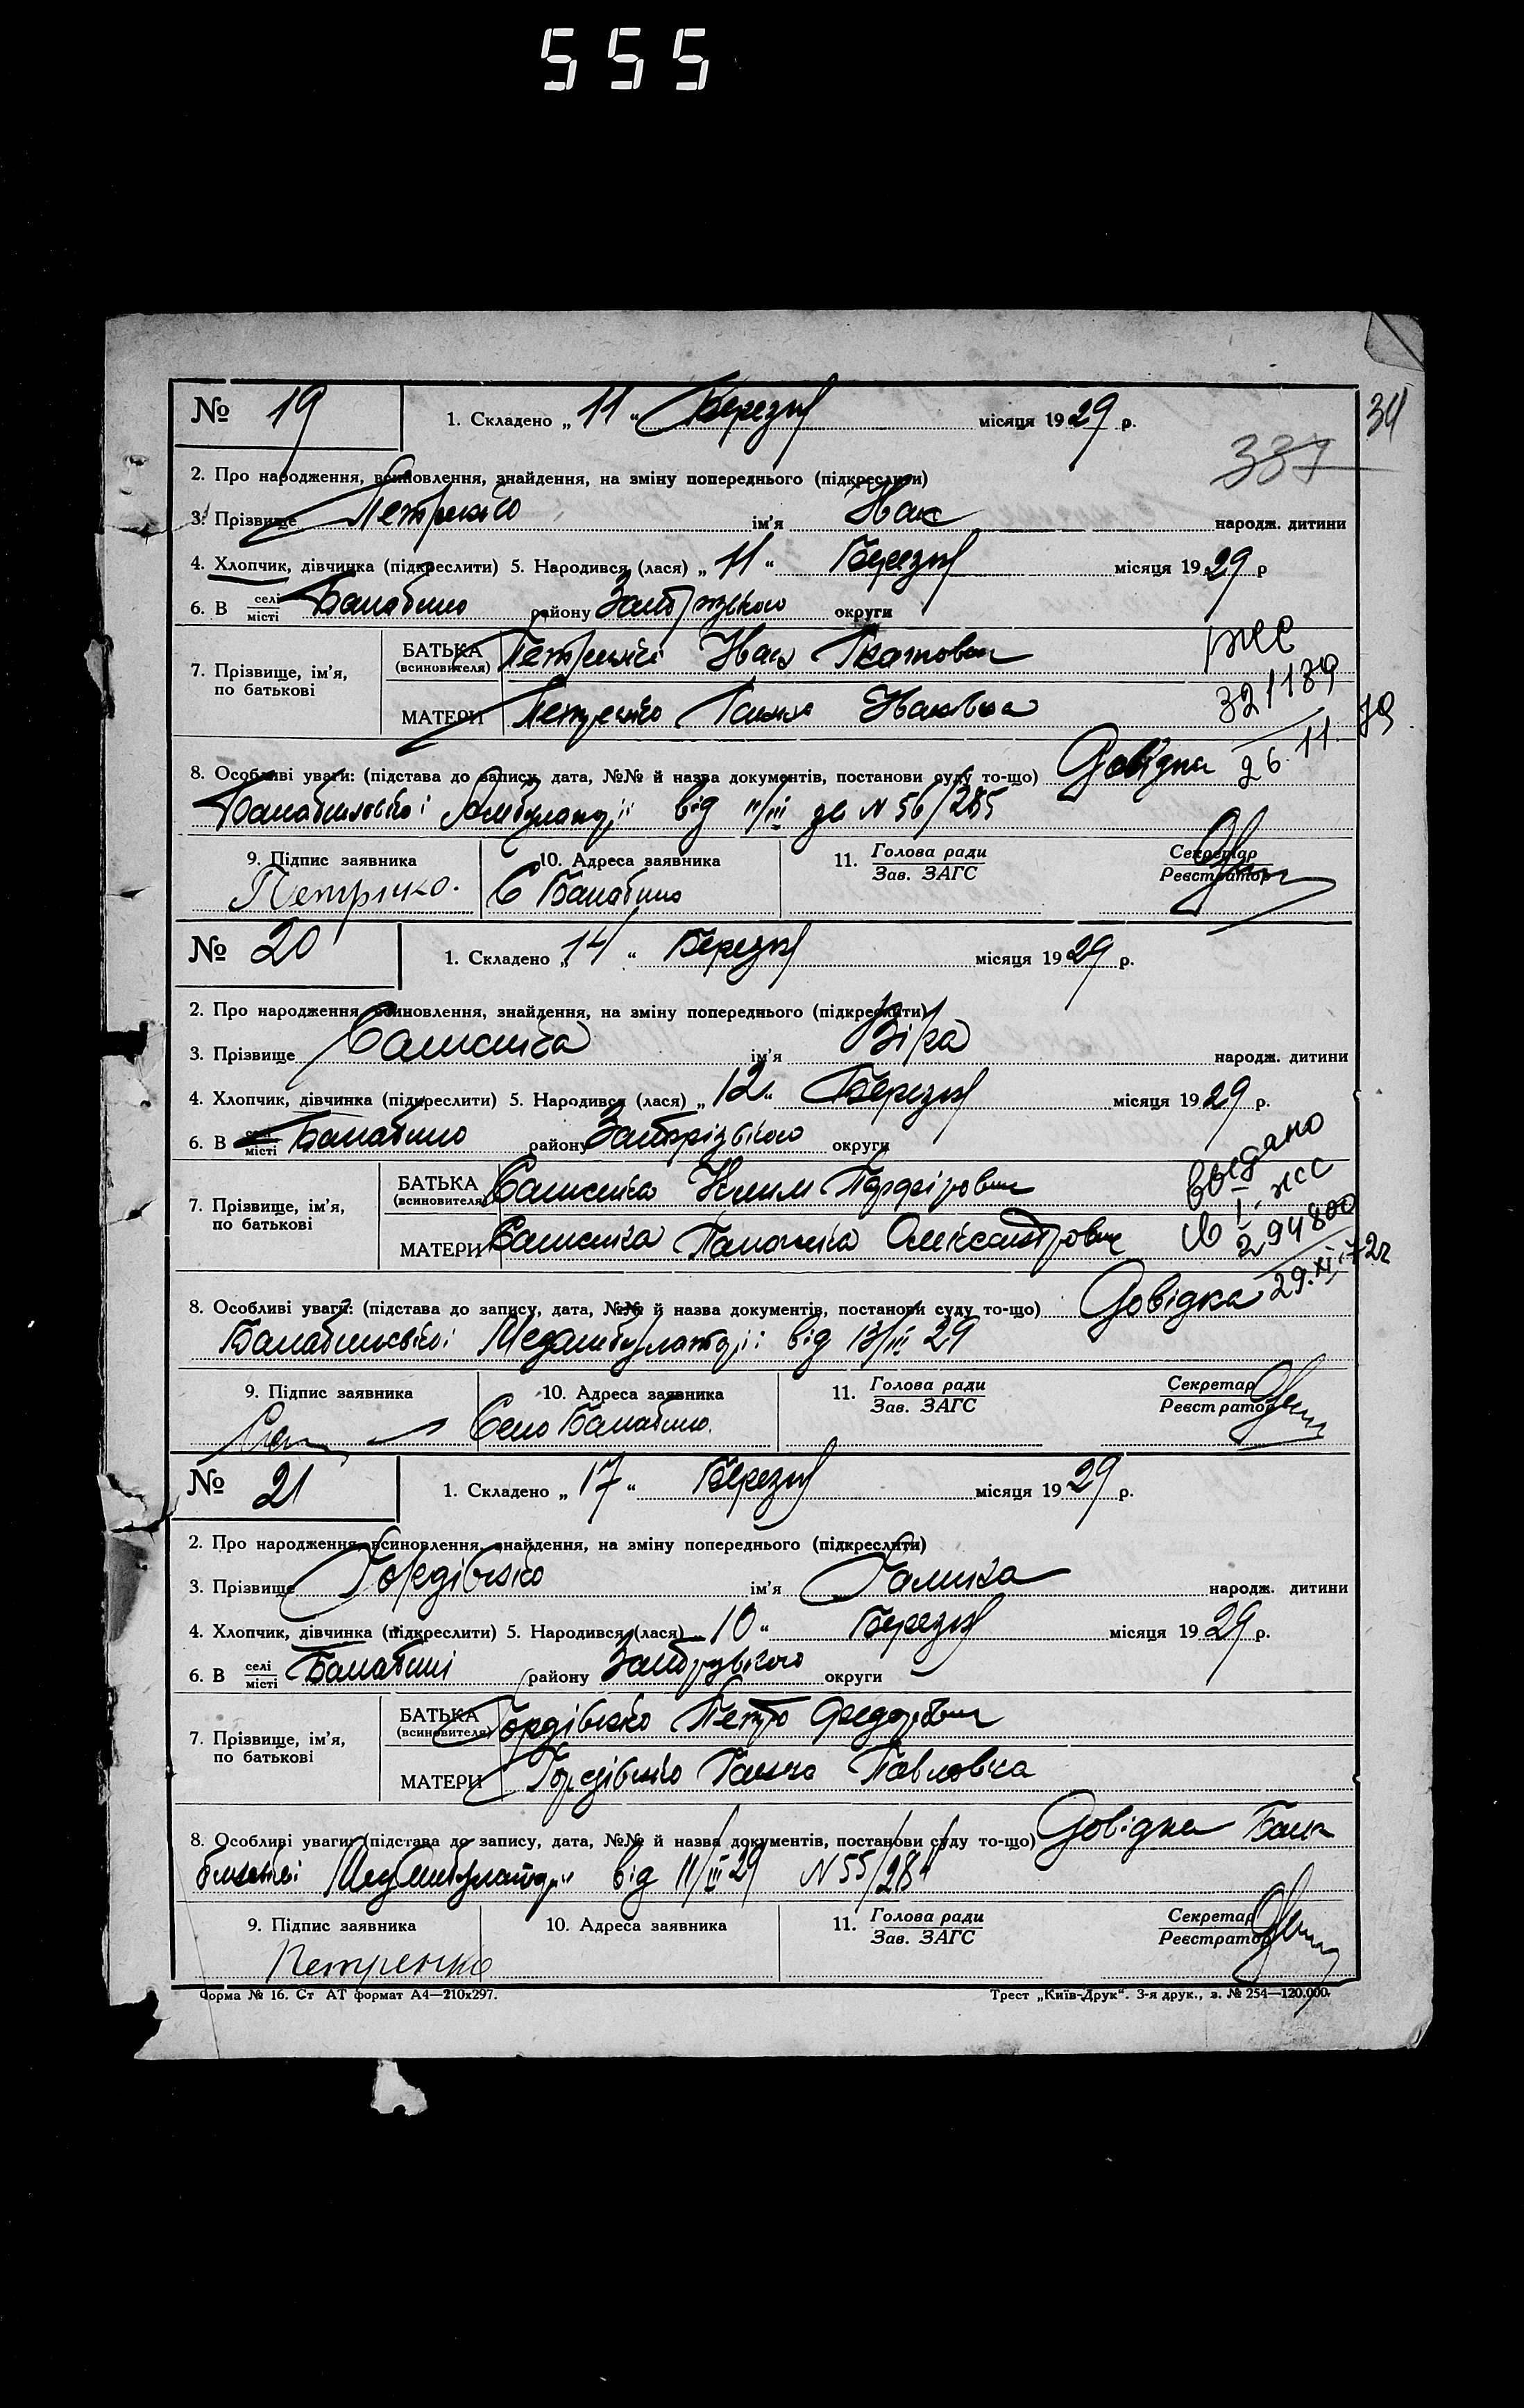 555
34
№ 19 1. Складено „ 11 “ Березня місяця 1929 р.
337
2. Про народження, всиновлення, знайдення, на зміну попереднього (підкреслити)
3. Прізвище Петренко ім’я Іван народж. дитини
4. Хлопчик, дівчинка (підкреслити) 5. Народився (лася) „ 11 “ Березня місяця 1929 р
6. В селі місті Балабино району Запорізького округи
7. Прізвище, ім’я, по батькові
БАТЬКА (всиновителя) Петренко Іван
МАТЕРИ Петренко Ганна Іванівна
321189
26.11.79
8. Особливі уваги: (підстава до запису, дата, №№ й назва документів, постанови суду то-що) Довідка
Балабинської Амбулаторії від 11/III за N 56/285
9. Підпис заявника 10. Адреса заявника 11. Голова ради Зав. ЗАГС Секретар Реєстратор
Петрічко. С Балабино
№ 20 1. Складено „ 14 “ Березня місяця 1929 р.
2. Про народження, всиновлення, знайдення, на зміну попереднього (підкреслити)
3. Прізвище ім’я Віра народж. дитини
4. Хлопчик, дівчинка (підкреслити) 5. Народився (лася) „ 12 “ Березня місяця 1929 р.
6. В селі місті Балабино району Запорізького округи
7. Прізвище, ім’я, по батькові
БАТЬКА (всиновителя) Клим Порфірович
МАТЕРИ Олександровна
выдано
294800
29.XI.72г
8. Особливі уваги: (підстава до запису, дата, №№ й назва документів, постанови суду то-що) Довідка
Балабинської Медамбулаторії від 13/III 29
9. Підпис заявника 10. Адреса заявника 11. Голова ради Зав. ЗАГС Секретар Реєстратор
Село Балабино.
№ 21 1. Складено „ 17 “ Березня місяця 1929 р.
2. Про народження, всиновлення, знайдення, на зміну попереднього (підкреслити)
3. Прізвище Гордієнко ім’я Галина народж. дитини
4. Хлопчик, дівчинка (підкреслити) 5. Народився (лася) „ 10 “ Березня місяця 1929 р.
6. В селі місті Балабині району Запорізького округи
7. Прізвище, ім’я, по батькові
БАТЬКА (всиновителя) Гордієнко Петро Федорович
МАТЕРИ Гордієнко Ганна Павловна
8. Особливі уваги: (підстава до запису, дата, №№ й назва документів, постанови суду то-що) Довідка Бала
бинської Медамбулаторії від 11/III 29 N 55/284
9. Підпис заявника 10. Адреса заявника 11. Голова ради Зав. ЗАГС Секретар Реєстратор
Петренко
Форма № 16. Ст АТ формат А4—210х297. Трест „Київ-Друк“. 3-я друк., з. № 254—120.000.